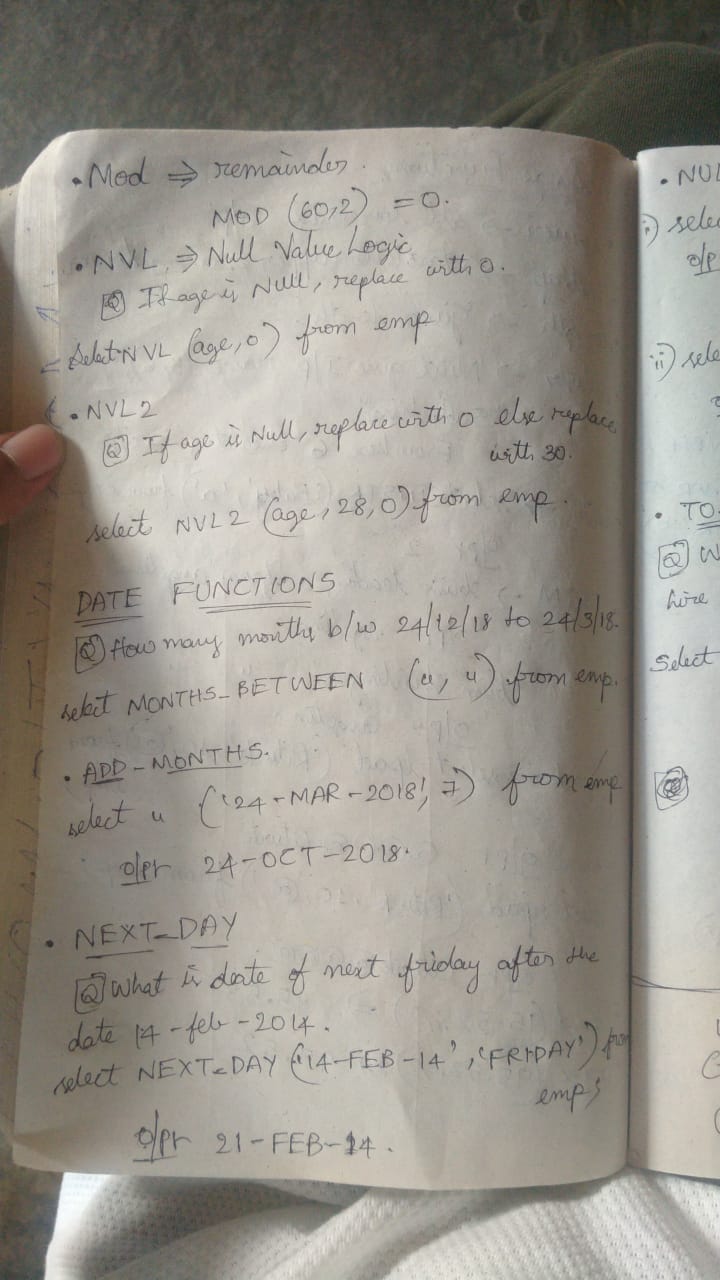 • Mod ⇒ remainder.
MOD (60,2) = 0.
• NVL ⇒ Null Value Logic
Q If age is Null, replace with 0.
Select NVL (age,0) from emp
• NVL2
Q If age is Null, replace with 0 else replace
with 30.
select NVL2 (age, 28, 0) from emp.
DATE FUNCTIONS
Q How many months b/w 24/12/18 to 24/3/18.
select MONTHS_BETWEEN (u, u) from emp.
• ADD-MONTHS.
select u ('24-MAR-2018', 7) from emp
o/pr 24-OCT-2018.
• NEXT_DAY
Q What is date of next friday after the
date 14-feb-2014.
select NEXT_DAY ('14-FEB-14', 'FRIDAY') from
emp;
o/pr 21-FEB-14.
• NUL
i) selec
o/p
ii) sele
• TO
Q W
hire
Select